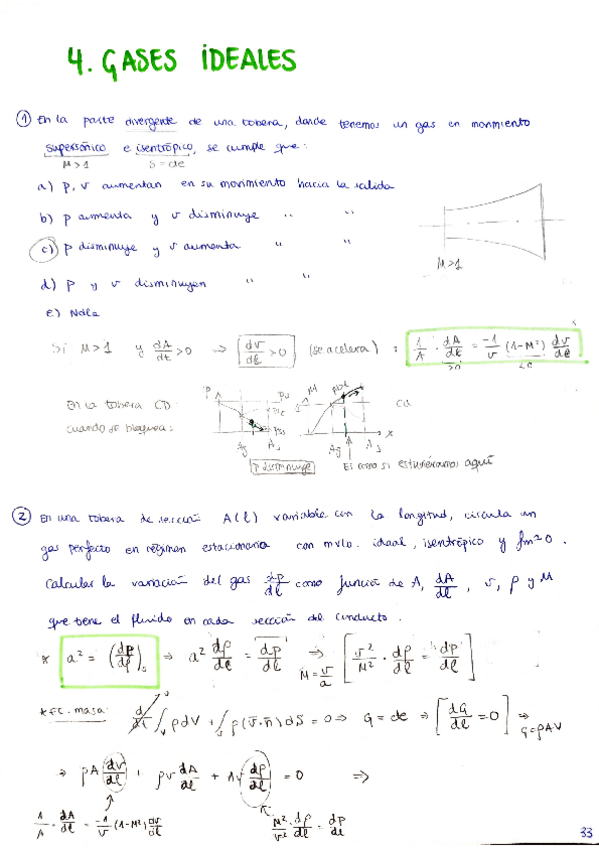 4. GASES IDEALES
① En la parte divergente de una tobera, donde tenemos un gas en movimiento
supersónico e isentrópico, se cumple que:
M>1 S=cte
a) p, v aumentan en su movimiento hacia la salida
b) p aumenta y v disminuye " "
c) p disminuye y v aumenta " "
d) p y v disminuyen " "
e) Ndla
M>1
Si M>1 y dA/dℓ >0 ⇒ dv/dℓ >0 (se acelera) : 1/A · dA/dℓ = -1/v (1-M²) dv/dℓ
>0 <0
En la tobera CD
cuando se bloquea:
p disminuye
Es como si estuviéramos aquí
② En una tobera de sección A(ℓ) variable con la longitud, circula un
gas perfecto en régimen estacionario con mvto. ideal, isentrópico y fm≃0.
Calcular la variación del gas dp/dℓ como función de A, dA/dℓ, v, ρ y M
que tiene el fluido en cada sección del conducto.
* a² = (dp/dρ)s ⇒ a² dρ/dℓ = dp/dℓ ⇒ M = v/a [v²/M² · dρ/dℓ = dp/dℓ]
* EC. masa: d/dt ∫v ρdV + ∫s ρ(v̄·n̄)dS = 0 ⇒ G = cte ⇒ [dG/dℓ = 0] ⇒
G=ρAV
⇒ ρA dv/dℓ + ρv dA/dℓ + Av dρ/dℓ = 0 ⇒
1/A · dA/dℓ = -1/v (1-M²) dv/dℓ
M²/v² · dp/dℓ = dρ/dℓ
33